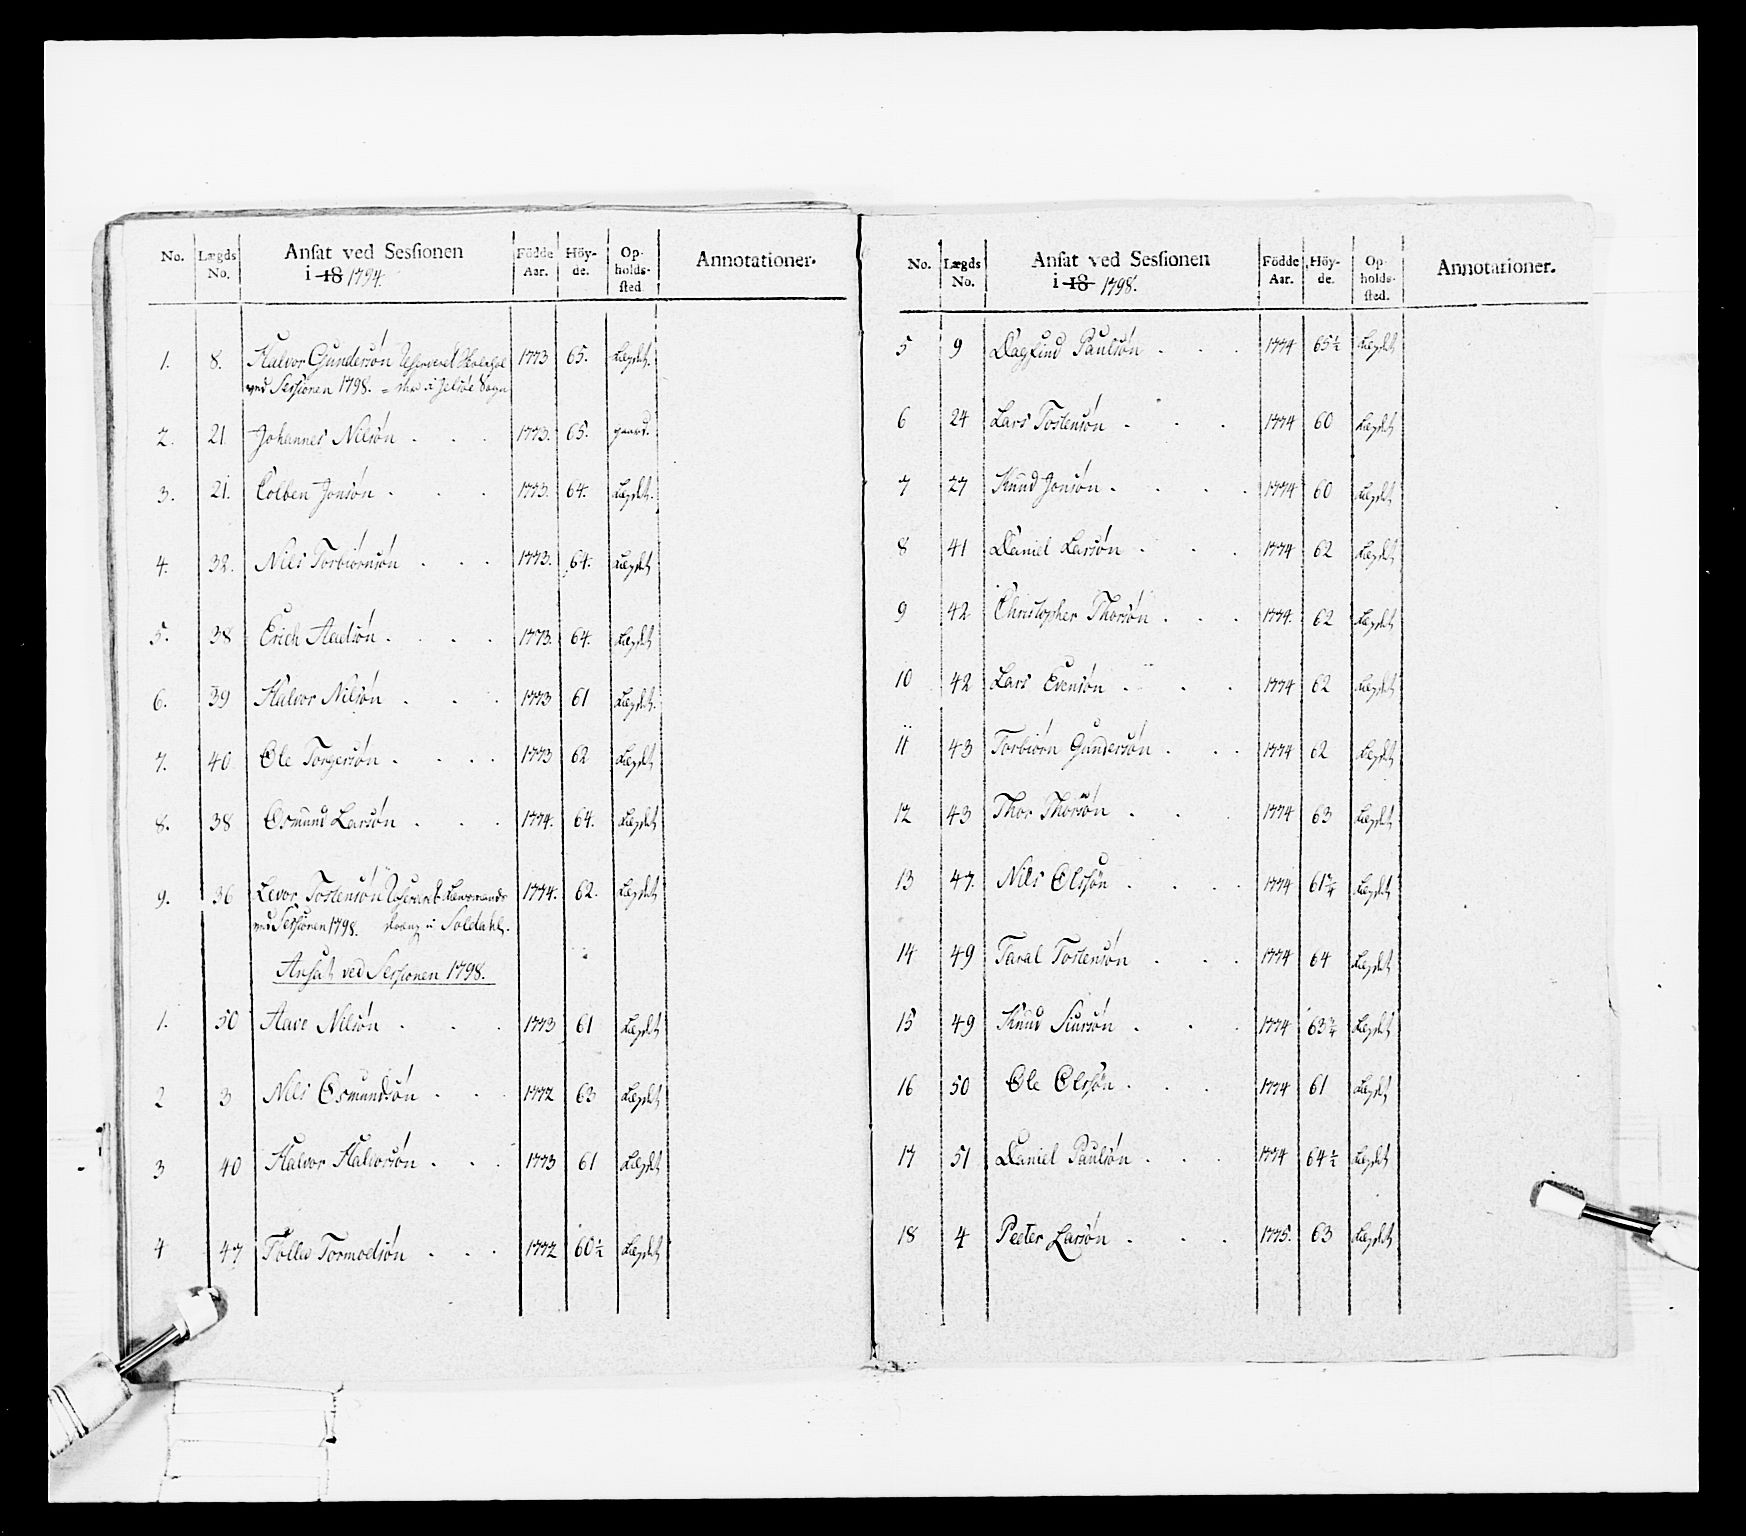 No. Lægds No. Ansat ved Sessionen i 18 1794. Födde Aar. Höyde. Opholdssted. Annotationer.
1. 8. Halvor Gundersön 1773 65. Lægdet.
ved Sessionen 1798. Sogn
2. 21. Johannes Nilsön . . . 1773. 65.
3. 21. Colben Jonsön . . . 1773. 64. Lægdet.
4. 32. Nils Torbiörnsön . . . 1773. 64. Lægdet
5. 38 Erich Aadsön . . . . 1773. 64. Lægdet
6. 39 Halvor Nilsön . . . 1773 61 Lægdet.
7. 40 Ole Torgersön . . . . 1773 62 Lægdet
8. 38 Osmund Larsön . . . 1774. 64. Lægdet
9. 36 Levor Tostensön 1774. 62. Lægdet
ved Sessionen 1798. i
Ansat ved Sessionen 1798.
1. 50 Aave Nilsön . . . 1773 61 Lægdet
2 3 Nils Osmundsön . . . 1772 63 Lægdet
3 40 Halvor Halvorsön . . . 1773 61 Lægdet
4 47 Tormodsön . . . 1772 60½ Lægdet
No. Lægds No. Ansat ved Sessionen i 18 1798. Födde Aar. Höyde. Opholdssted. Annotationer.
5 9 Dagfind Paulsön . . . 1774 65½ Lægdet
6 24 Lars Tostensön . . . 1774 60 Lægdet
7 27 Knud Jonsön . . . . 1774 60 Lægdet
8 41 Daniel Larsön . . . 1774 62 Lægdet
9 42 Christopher Thorsön . . . 1774. 62 Lægdet
10 42 Lars Evensön . . . 1774 62 Lægdet
11 43 Torbiörn Gundersön . . . 1774 62 Lægdet
12 43 Thor Thorsön . . . 1774 63 Lægdet
13 47. Nils Olssön . . . . 1774 61¾ Lægdet
14 49 Taral Tostensön . . . 1774 64 Lægdet
15 49 Knud Siursön . . . 1774 63¾ Lægdet
16 50 Ole Olssön . . . 1774 61 Lægdet
17 51 Daniel Paulsön . . . 1774 64½ Lægdet
18 4 Peeter Larsön . . . 1775. 63 Lægdet